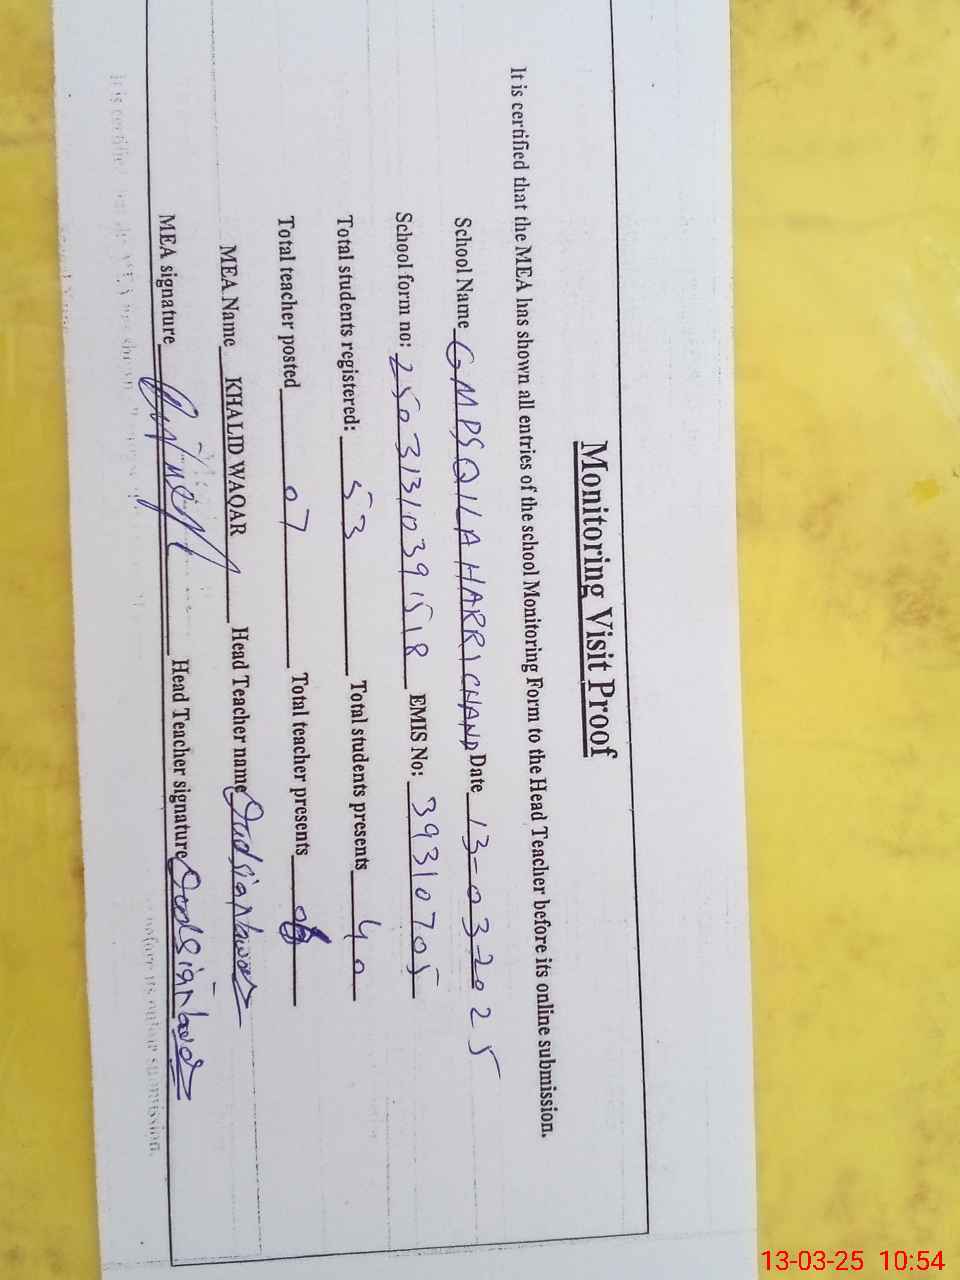 Monitoring Visit Proof
It is certified that the MEA has shown all entries of the school Monitoring Form to the Head Teacher before its online submission.
School Name GMPS QILA HARRICHAND Date 13-03-2025
School form no: 25031310391518 EMIS No: 39310705
Total students registered: 53 Total students presents 40
Total teacher posted 07 Total teacher presents
MEA Name KHALID WAQAR Head Teacher name
MEA signature Head Teacher signature
13-03-25 10:54